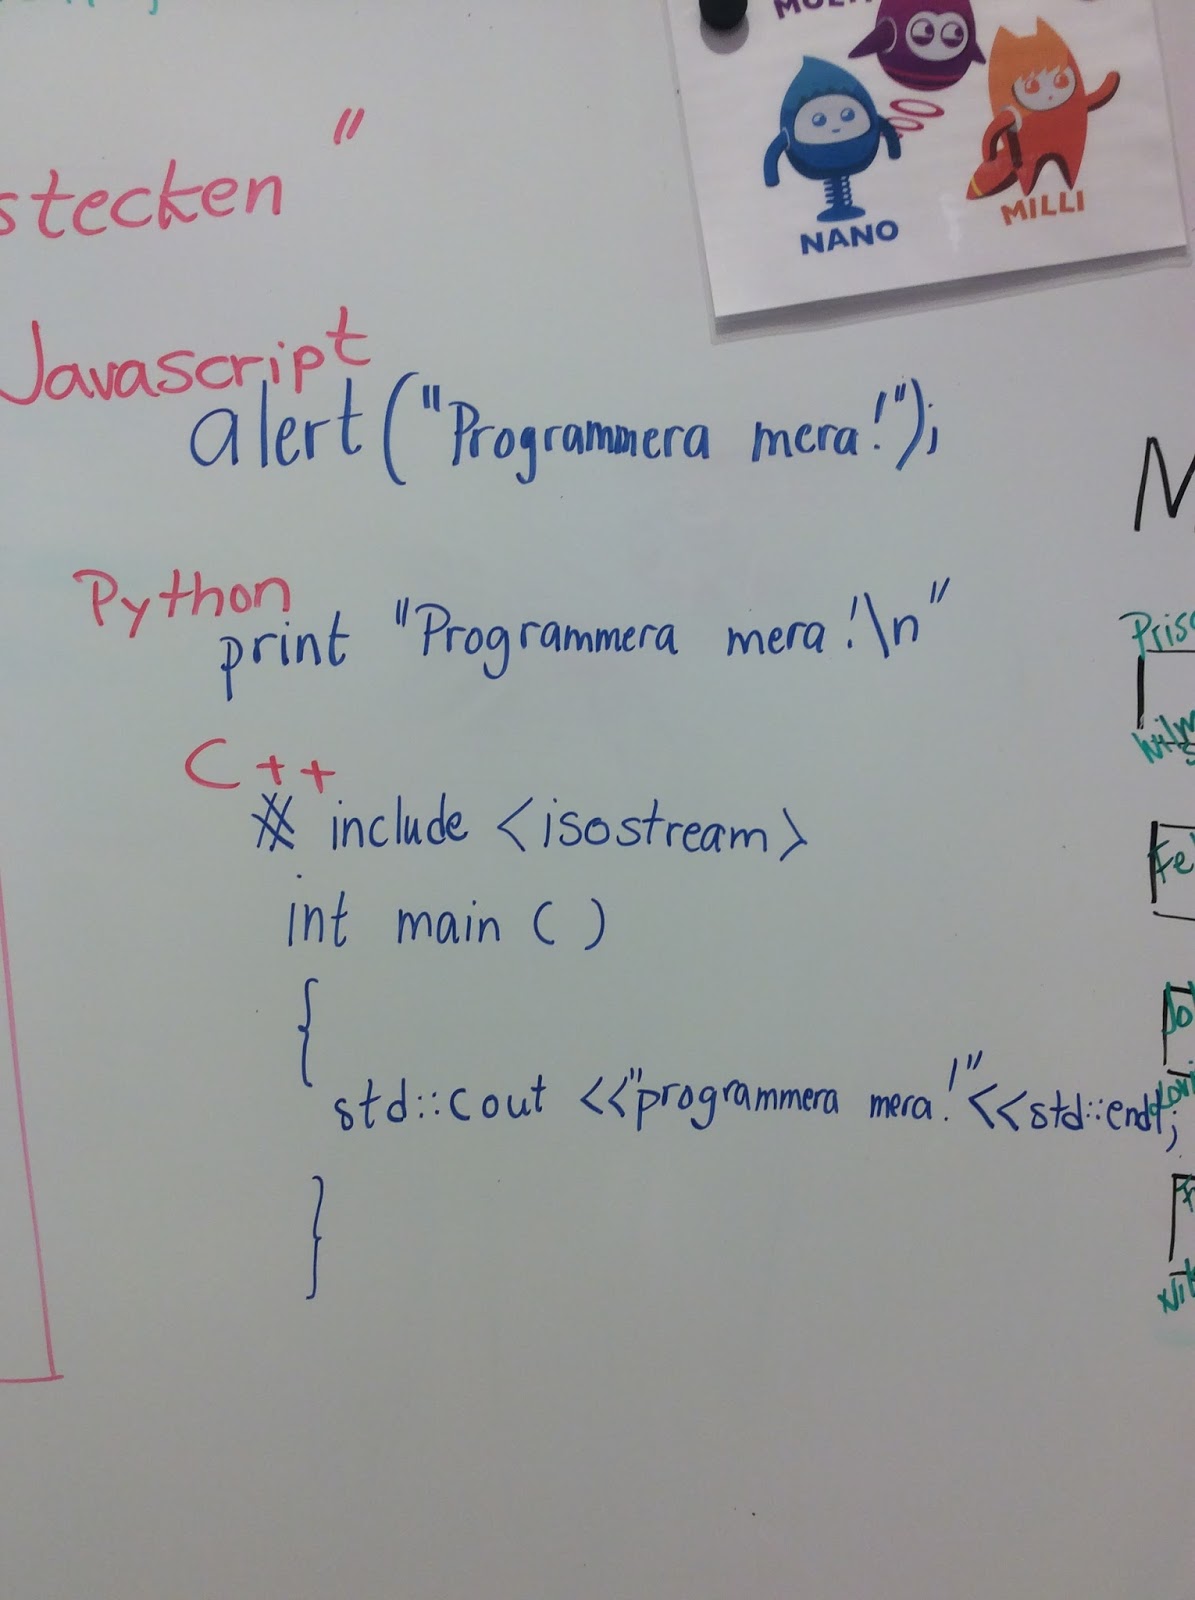 NANO
MILLI
stecken "
Javascript
alert("Programmera mera!");
Python
print "Programmera mera!\n"
C++
# include <isostream>
int main ( )
{
std::cout <<"programmera mera!"<<std::endl;
}